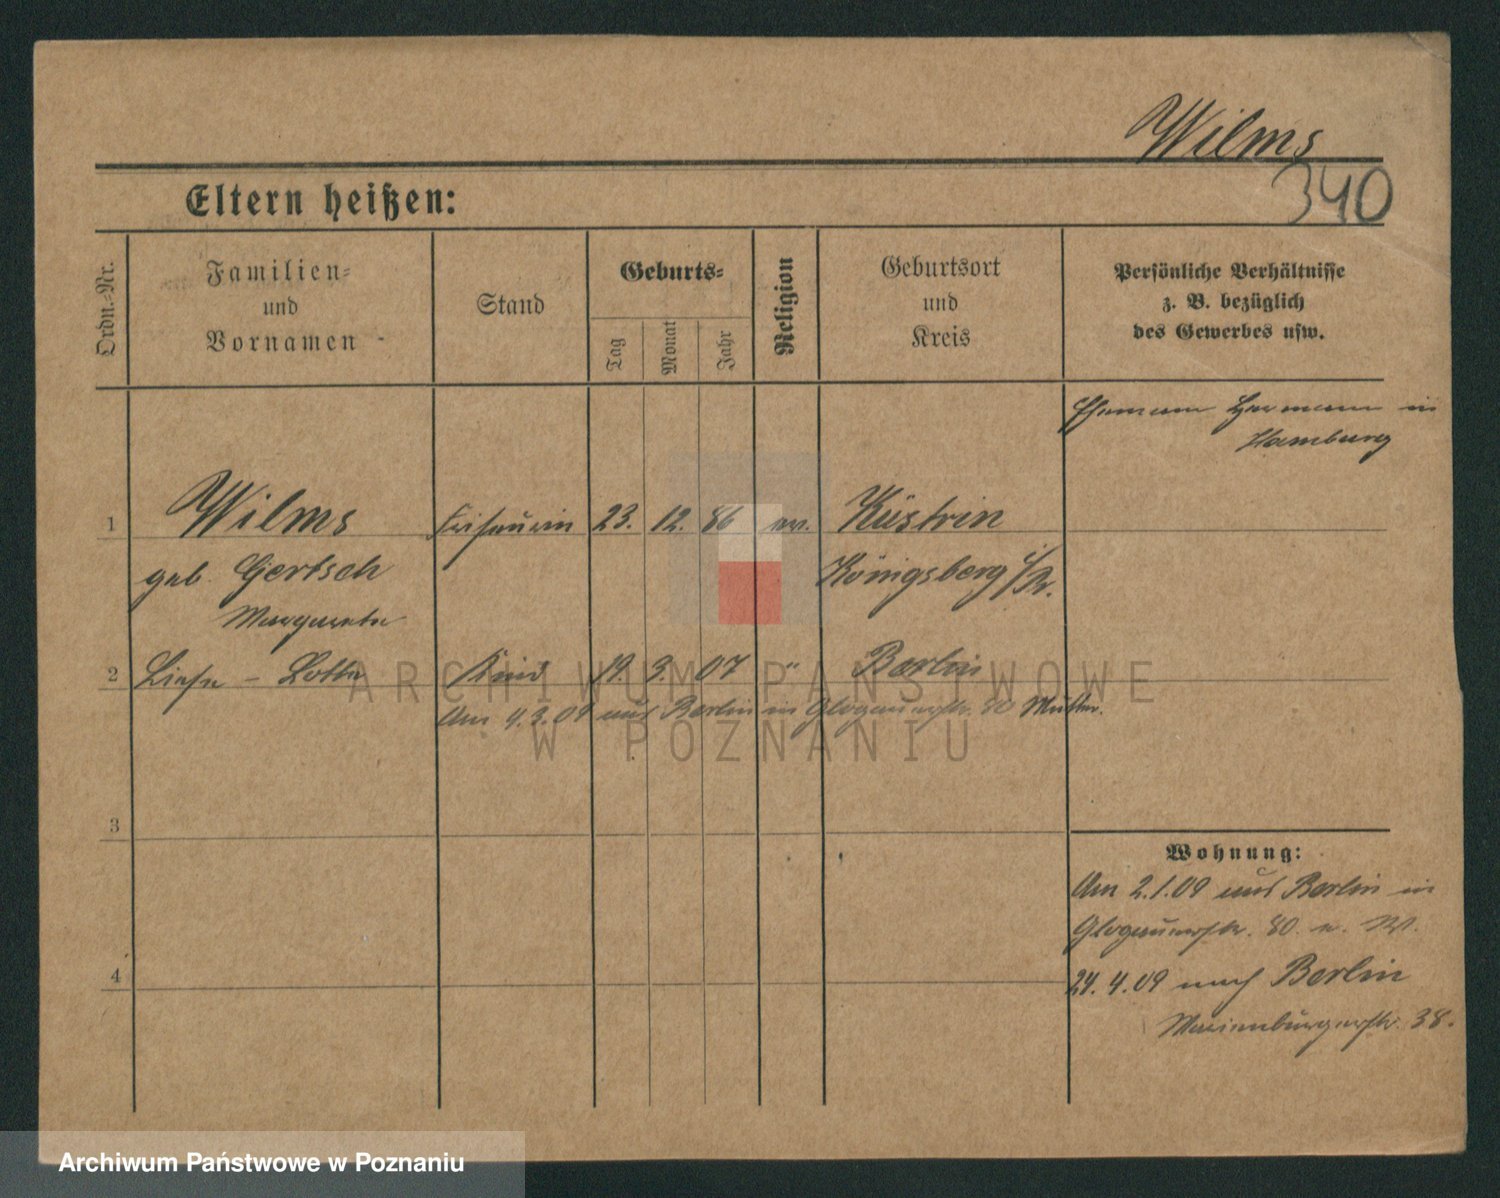 Wilms
340
Eltern heißen:
Ordn.-Nr.
Familien-
und
Vornamen
Stand
Geburts-
Tag
Monat
Jahr
Religion
Geburtsort
und
Kreis
Persönliche Verhältnisse
z. B. bezüglich
des Gewerbes usw.
Ehemann Hermann in
Hamburg
1 Wilms Friseurin 23. 12. 86 ev. Küstrin
geb. Gertsch Königsberg i/Pr.
Margarete
2 Liese - Lotte Kind 19. 3. 07 " Berlin
Am 4.3.09 aus Berlin in Glogauerstr. 80 Mutter.
3
4
Wohnung:
Am 2.1.09 aus Berlin in
Glogauerstr. 80.
24.4.09 nach Berlin
Marienburgerstr. 38.
ARCHIWUM PAŃSTWOWE
W POZNANIU
Archiwum Państwowe w Poznaniu